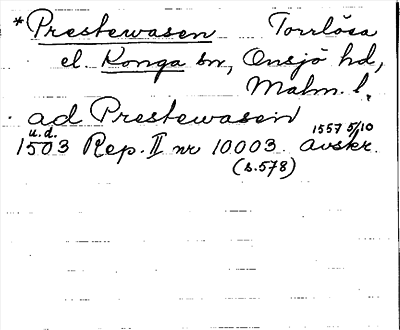 *Prestewasen Torrlösa
el. Konga sn, Onsjö hd,
Malm. l.
ad Prestewasen
u.d. 1557 5/10
1503 Rep. II nr 10003. avskr.
(s.578)